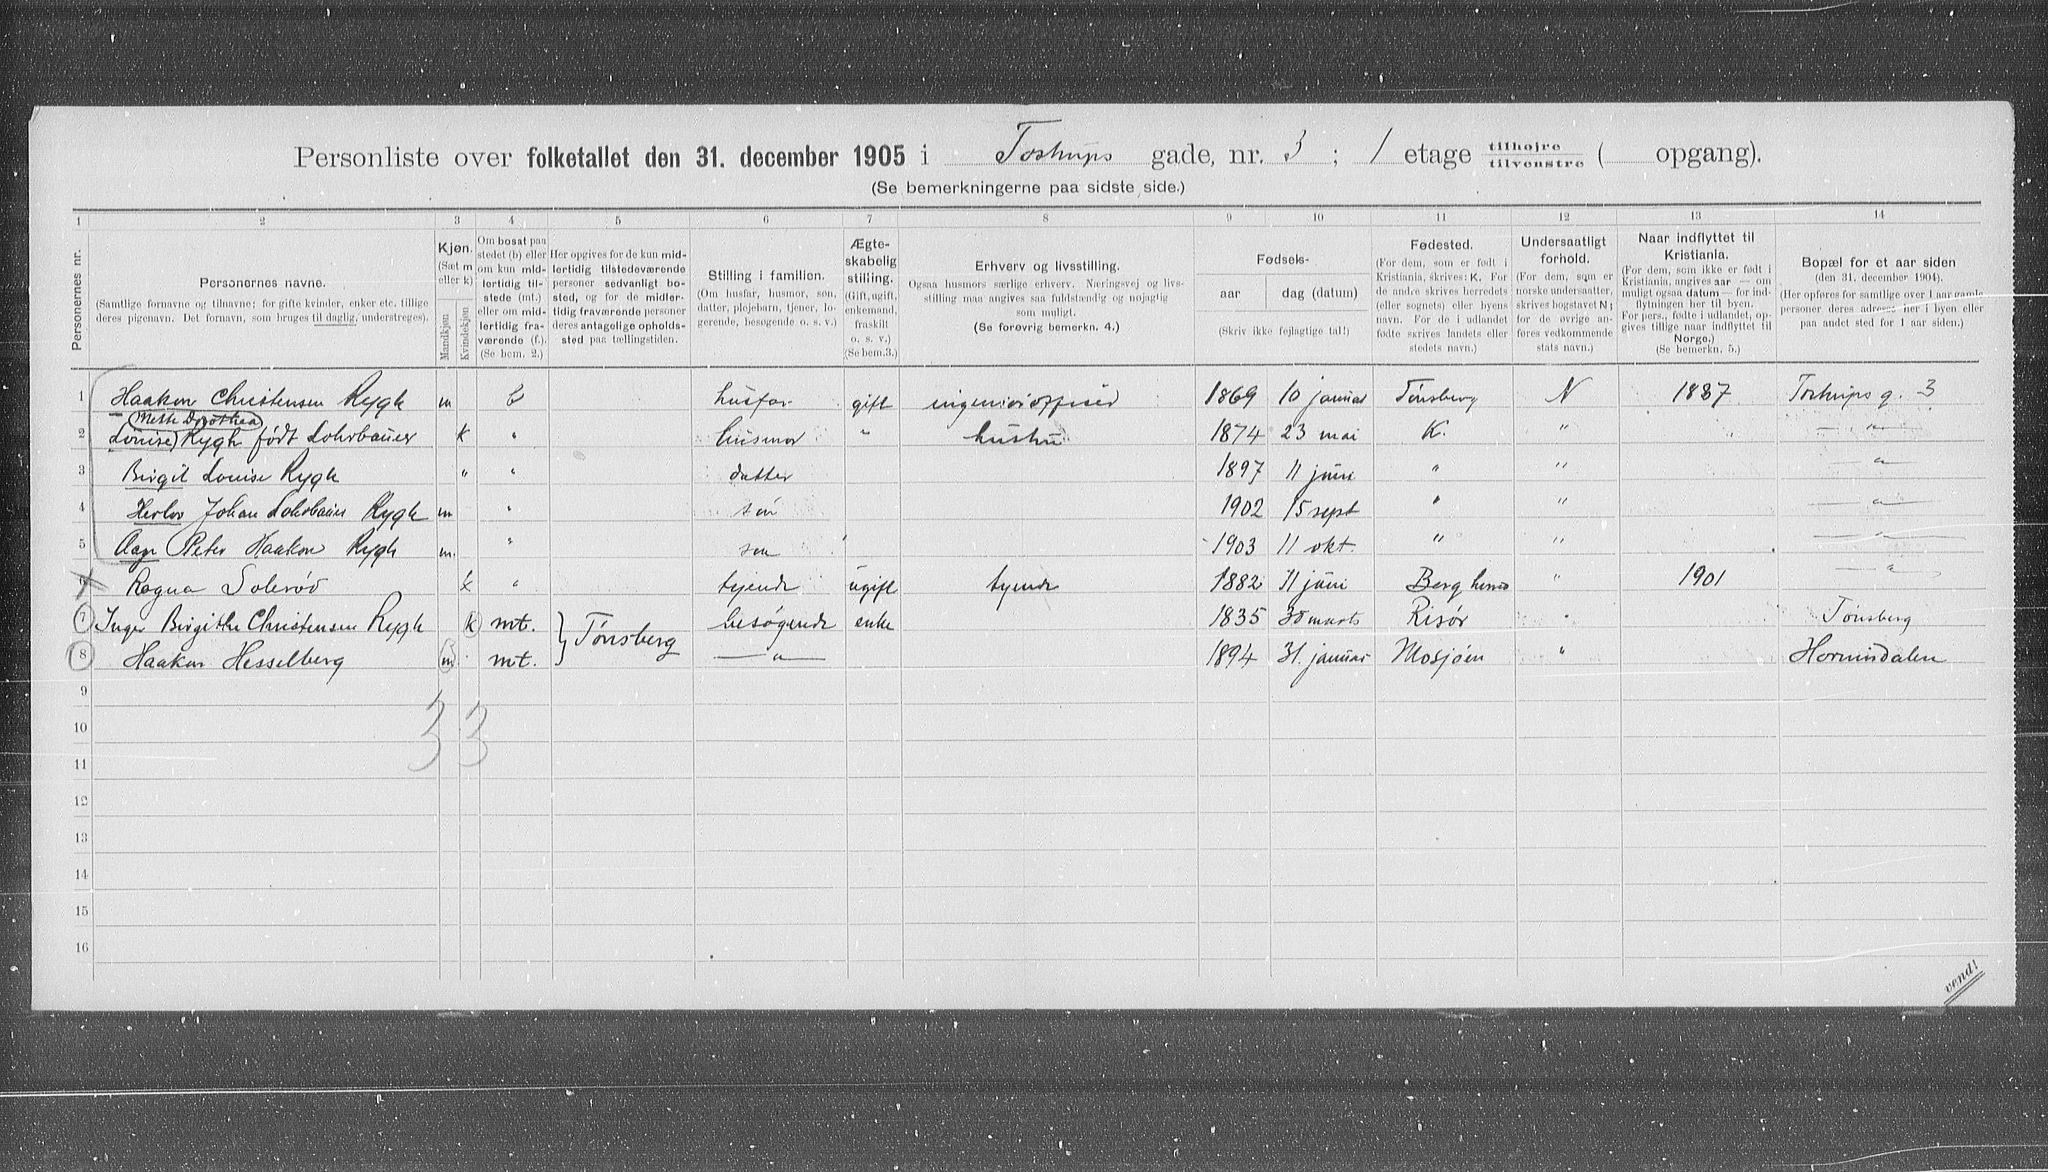 Personliste over folketallet den 31. december 1905 i Tostrups gade, nr. 3 ; 1 etage tilhøjre tilvenstre ( opgang).
(Se bemerkningerne paa sidste side.)
1 2 3 4 5 6 7 8 9 10 11 12 13 14
Personernes nr.
Personernes navne.
(Samtlige fornavne og tilnavne; for gifte kvinder, enker etc. tillige deres pigenavn. Det fornavn, som bruges til daglig, understreges).
Kjøn.
(Sæt m eller k)
Mandkjøn
Kvindekjøn
Om bosat paa stedet (b) eller om kun midlertidig tilstede (mt.) eller om midlertidig fraværende (f.). (Se bem. 2.)
Her opgives for de kun midlertidig tilstedeværende personer sedvanligt bosted, og for de midlertidig fraværende personer deres antagelige opholdssted paa tællingstiden.
Stilling i familien.
(Om husfar, husmor, søn, datter, plejebarn, tjener, logerende, besøgende o. s. v.)
Ægteskabelig stilling.
(Gift, ugift, enkemand, fraskilt o. s. v.) (Se bem.3.)
Erhverv og livsstilling.
Ogsaa husmors særlige erhverv. Næringsvej og livsstilling maa angives saa fuldstændig og nøjagtig som muligt.
(Se forøvrig bemerkn. 4.)
Fødsels-
aar
dag (datum)
(Skriv ikke fejlagtige tal!)
Fødested.
(For dem, som er født i Kristiania, skrives: K. For de andre skrives herredets (eller sognets) eller byens navn. For de i udlandet fødte skrives landets eller stedets navn.)
Undersaatligt forhold.
(For dem, som er norske undersaatter, skrives bogstavet N; for de øvrige anføres vedkommende stats navn.)
Naar indflyttet til Kristiania.
(For dem, som ikke er født i Kristiania, angives aar — om muligt ogsaa datum — for indflytningen her til byen. For pers., fødte i udlandet, opgives tillige naar indflyttet til Norge.)
(Se bemerkn. 5.)
Bopæl for et aar siden
(den 31. december 1904).
(Her opføres for samtlige over 1 aar gamle personer deres adresse her i byen eller paa andet sted for 1 aar siden.)
1 Haakon Christensen Rygh m b husfar gift ingeniøroffiser 1869 10 januar Tønsberg N 1887 Tostrups g. 3
(Mette Dorothea)
2 Louise Rygh født Lohrbauer k " husmor " hustru 1874 23 mai K. " — " —
3 Birgit Louise Rygh " " datter 1897 11 juni " " — " —
4 Herlov Johan Lohrbauer Rygh m " søn 1902 15 sept " " — " —
5 Aage Peter Haakon Rygh m. " søn 1903 11 okt. " " — " —
6 Ragna Solerød k " tjende ugift tjende 1882 11 juni Berg herred " 1901 — " —
7 Inger Birgithe Christensen Rygh k mt. } Tønsberg besøgende enke 1835 30 marts Risør " Tønsberg
8 Haakon Hesselberg m mt. — " — 1894 31. januar Mosjøen " Hornindalen
9
3 3
10
11
12
13
14
15
16
vend!